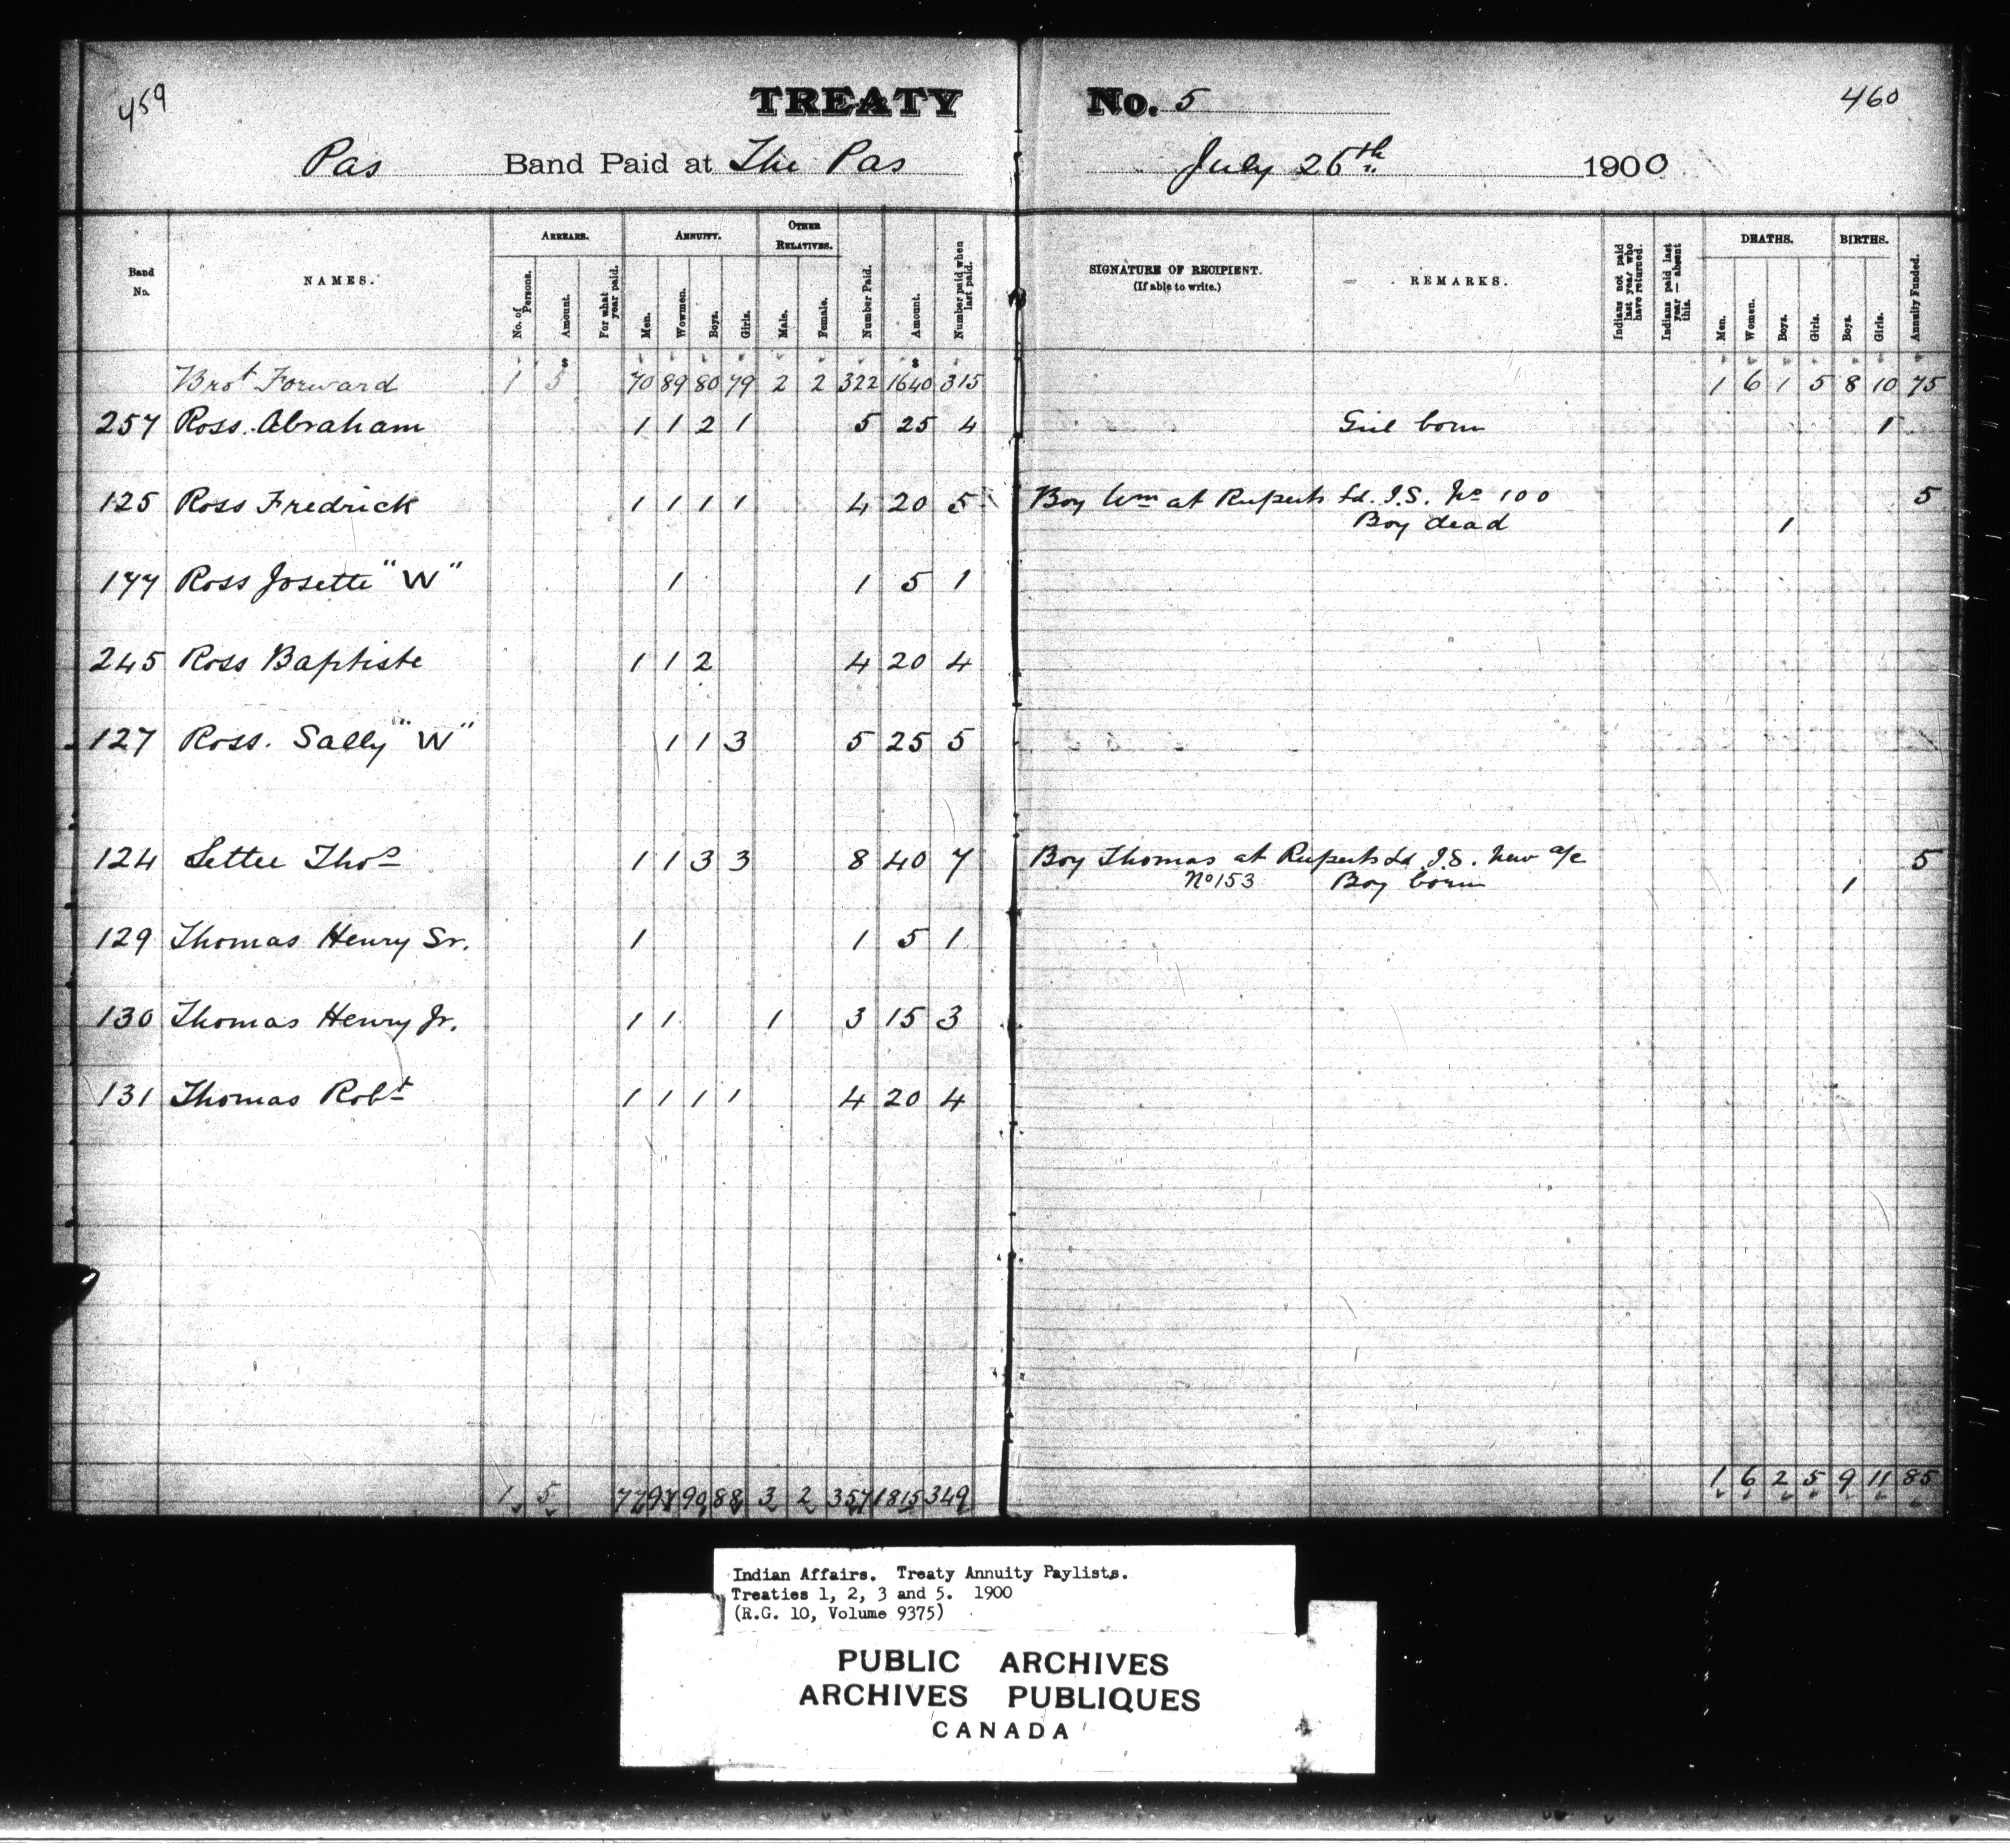 459
TREATY No. 5
460
Pas Band Paid at The Pas July 26th 1900
Band No. NAMES. ARREARS. No. of Persons. Amount. For what year paid. ANNUITY. Men. Wowmen. Boys. Girls. OTHER RELATIVES. Male. Female. Number Paid. Amount. Number paid when last paid. SIGNATURE OF RECIPIENT. (If able to write.) REMARKS. Indians not paid last year who have returned. Indians paid last year — absent this. DEATHS. Men. Women. Boys. Girls. BIRTHS. Boys. Girls. Annuity Funded.
$ $
Brot Forward 1 5 70 89 80 79 2 2 322 1640 315 1 6 1 5 8 10 75
257 Ross. Abraham 1 1 2 1 5 25 4 Girl born 1
125 Ross Fredrick 1 1 1 1 4 20 5 Boy Wm at Ruperts Ld. I.S. No 100 5
Boy dead 1
177 Ross Josette "W" 1 1 5 1
245 Ross Baptiste 1 1 2 4 20 4
127 Ross. Sally "W" 1 1 3 5 25 5
124 Settee Thos 1 1 3 3 8 40 7 Boy Thomas at Ruperts Ld I.S. New a/c 5
No 153 Boy born 1
129 Thomas Henry Sr. 1 1 5 1
130 Thomas Henry Jr. 1 1 1 3 15 3
131 Thomas Robt 1 1 1 1 4 20 4
1 5 77 97 90 88 3 2 357 1815 349 1 6 2 5 9 11 85
Indian Affairs. Treaty Annuity Paylists.
Treaties 1, 2, 3 and 5. 1900
(R.G. 10, Volume 9375)
PUBLIC ARCHIVES
ARCHIVES PUBLIQUES
CANADA